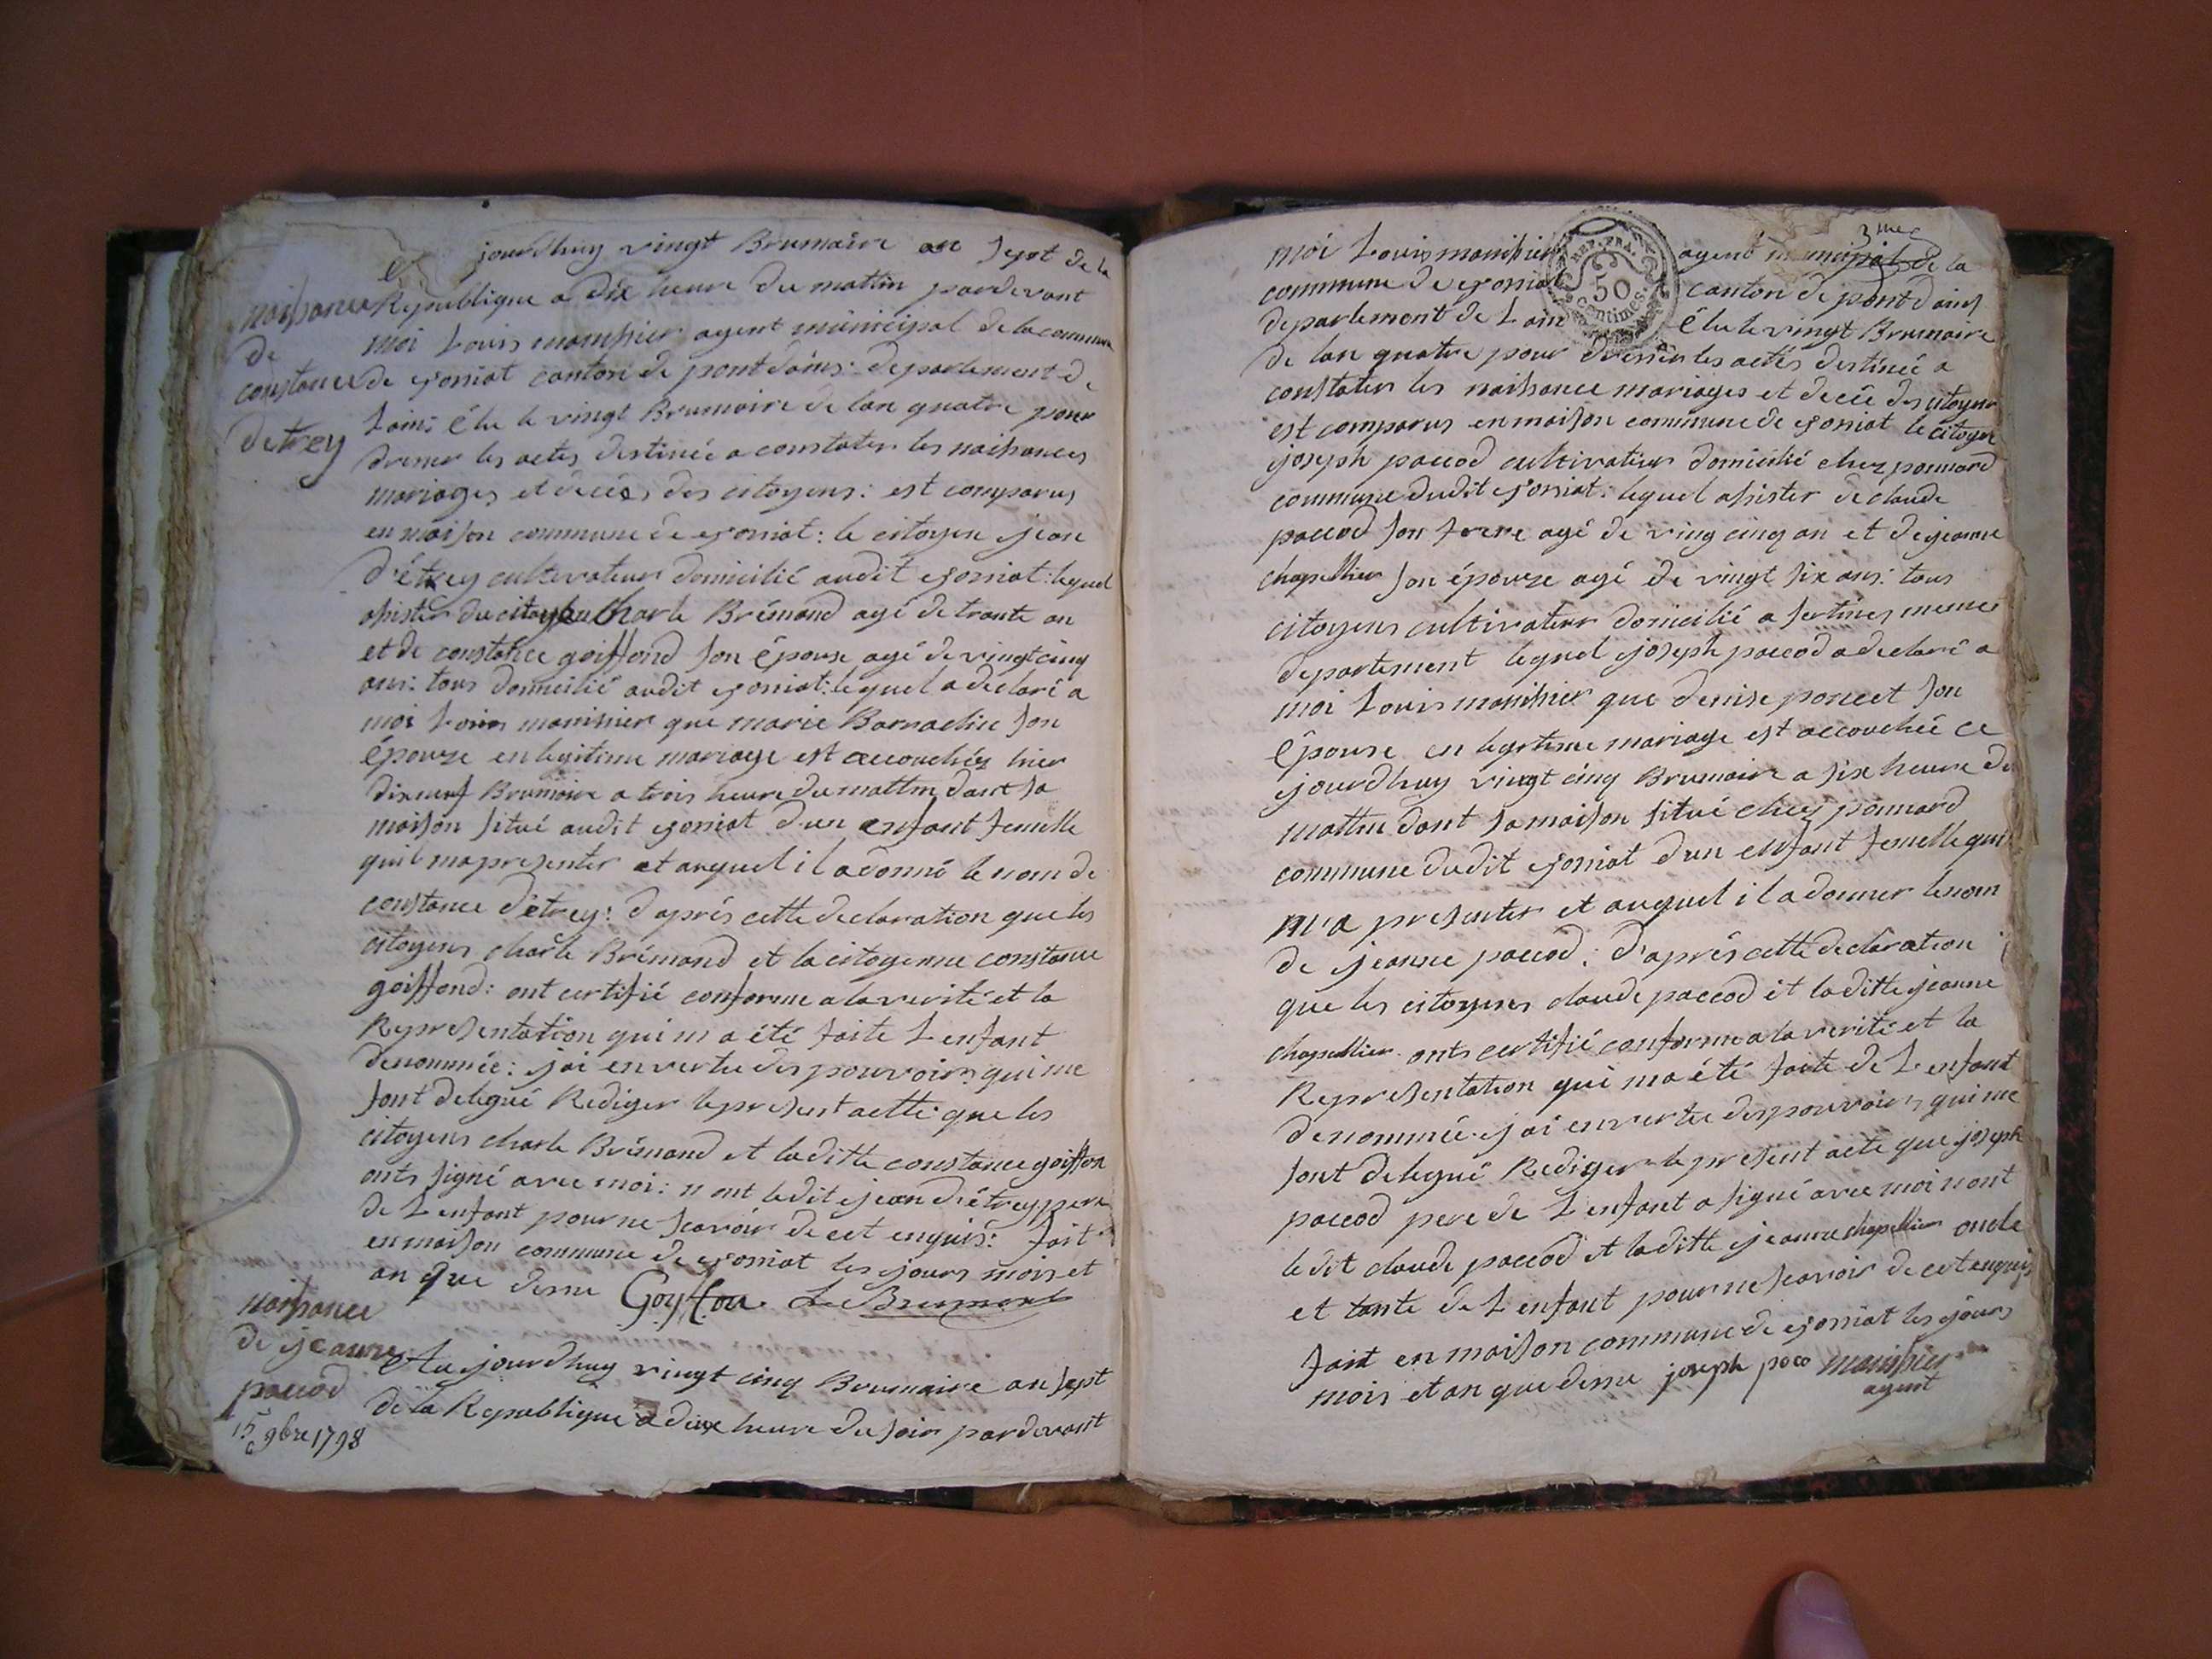 jourdhuy vingt Brumaire an sept de la
naissance
de
constance
detrey
Republique a dix heure du mattin pardevant
moi Louis manissier agent municipal de la commune
de josniat canton de pont dains: departement de
Lain: élu le vingt Brumaire de lan quatre pour
dresser les actes destinée a constater les naissances
mariages et décès des citoyens: est comparus
en maison commune de josniat: le citoyen jean
d'étrey cultivateur domicilié audit josniat: lequel
assister du citoyen Charle Brémand agé de trante an
et de constance goiffond son épouse agé de vingt cinq
ans: tous domicilié audit josniat: lequel a declaré a
moi Louis manissier que marie Barnachie son
épouze en legitime mariage est accouchéz hier
dixneuf Brumaire a trois heure du mattin dant sa
maison situé audit josniat d'un enfant femelle
quil ma presenter et auquel il a donné le nom de
constance d'étrey: d'aprés cette declaration que les
citoyens charle Brémand et la citoyenne constance
goiffond: ont certifié conforme a la verité et la
Representation qui m a été faite L enfant
denommée: jai en vertu des pouvoirs qui me
sont delegué Rediger le present actte que les
citoyens charle Brémand et laditte constance goiffon
onts signé avec moi: n ont ledit jean d'étrey pere
de L enfant pour ne scavoir de cet enquis: fait
en maison commune de josniat les jours mois et
an que dessu Goyffon C Bremand
naissance
de jeanne
pacod
15 9bre 1798
Au jourdhuy vingt cinq Brumaire an sept
de la Republique a deux heure du soir pardevant
3me
moi Louis manissier agent municipal de la
commune de josniat canton de pont dains
REP. FRA.
50
Centimes.
departement de Lain élu le vingt Brumaire
de lan quatre pour dresser les actes destinée a
constater les naissance mariages et decée des citoyen
est comparus en maison commune de josniat le citoyen
joseph paccod cultivateur domicilié chez ponnard
commune dudit josniat: lequel assister de claude
paccod son frere agé de ving cinq an et de jeanne
chapellier son épouze agé de vingt six ans: tous
citoyens cultivateur domicilié a sertines meme
departement lequel joseph paccod a declaré a
moi Louis manissier que denise poncet son
épouse en legitime mariage est accouchée ce
jourdhuy vingt cinq Brumaire a six heure du
mattin dant sa maison situé chez ponnard
commune dudit josniat d'un enfant femelle quil
m'a presenter et auquel il a donner le nom
de jeanne paccod: d'aprés cette declaration
que les citoyens claude paccod et laditte jeanne
chapellier onts certifié conforme a la verité et la
Representation qui ma été faite de L enfant
denommée jai en vertu des pouvoirs qui me
sont delegué Rediger le present acte que joseph
paccod pere de L enfant a signé avec moi n ont
ledit claude paccod et laditte jeanne chapellier oncle
et tante de L enfant pour ne scavoir de cet enquis
fait en maison commune de josniat les jours
mois et an que dessu joseph poco manissier
agent